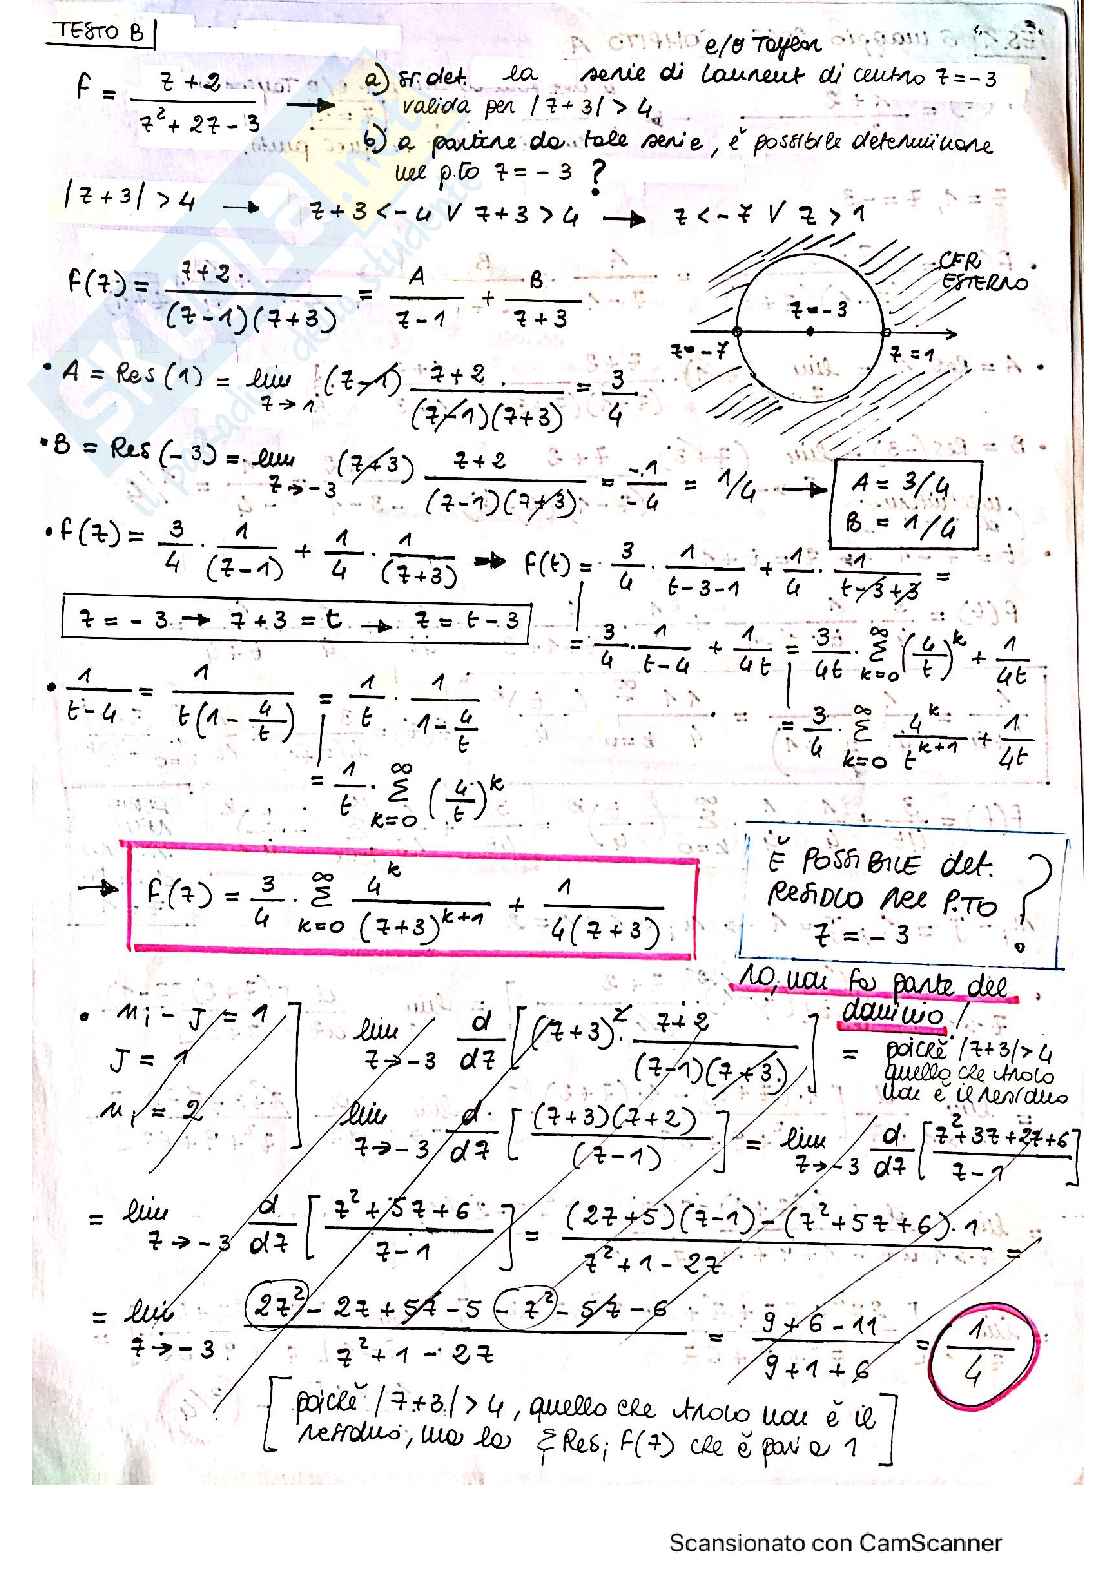 TESTO B
e/o Taylor
f = (z+2)/(z²+2z-3) → a) str. det. la serie di Laurent di centro z=-3
valida per |z+3|>4
b) a partire da tale serie, è possibile determinare
nel p.to z=-3 ?
|z+3|>4 → z+3<-4 ∨ z+3>4 → z<-7 ∨ z>1
CFR
ESTERNO
z=-3
z=-7
z=1
f(z) = (z+2)/((z-1)(z+3)) = A/(z-1) + B/(z+3)
• A = Res(1) = lim z→1 (z-1) (z+2)/((z-1)(z+3)) = 3/4
• B = Res(-3) = lim z→-3 (z+3) (z+2)/((z-1)(z+3)) = -1/-4 = 1/4 → A = 3/4
B = 1/4
• f(z) = 3/4 · 1/(z-1) + 1/4 · 1/(z+3) → f(t) = 3/4 · 1/(t-3-1) + 1/4 · 1/(t-3+3) =
z=-3 → z+3=t → z=t-3
= 3/4 · 1/(t-4) + 1/4t = 3/4t · Σ k=0 ∞ (4/t)^k + 1/4t
= 3/4 · Σ k=0 ∞ 4^k/t^(k+1) + 1/4t
• 1/(t-4) = 1/(t(1-4/t)) = 1/t · 1/(1-4/t)
= 1/t · Σ k=0 ∞ (4/t)^k
→ f(z) = 3/4 · Σ k=0 ∞ 4^k/(z+3)^(k+1) + 1/(4(z+3))
È POSSIBILE det.
RESIDUO NEL P.TO
z=-3 ?
NO, non fa parte del
dominio!
poiché |z+3|>4
quello che trovo
non è il residuo
• n_i - J = 1
J = 1
n_i = 2
lim z→-3 d/dz [(z+3)² · (z+2)/((z-1)(z+3))] =
lim z→-3 d/dz [(z+3)(z+2)/(z-1)] = lim z→-3 d/dz [(z²+3z+2z+6)/(z-1)]
= lim z→-3 d/dz [(z²+5z+6)/(z-1)] = ((2z+5)(z-1)-(z²+5z+6)·1)/(z²+1-2z) =
= lim z→-3 (2z²-2z+5z-5-z²-5z-6)/(z²+1-2z) = (9+6-11)/(9+1+6) = 1/4
[poiché |z+3|>4, quello che trovo non è il
residuo, ma la Σ Res_i f(z) che è pari a 1]
Scansionato con CamScanner